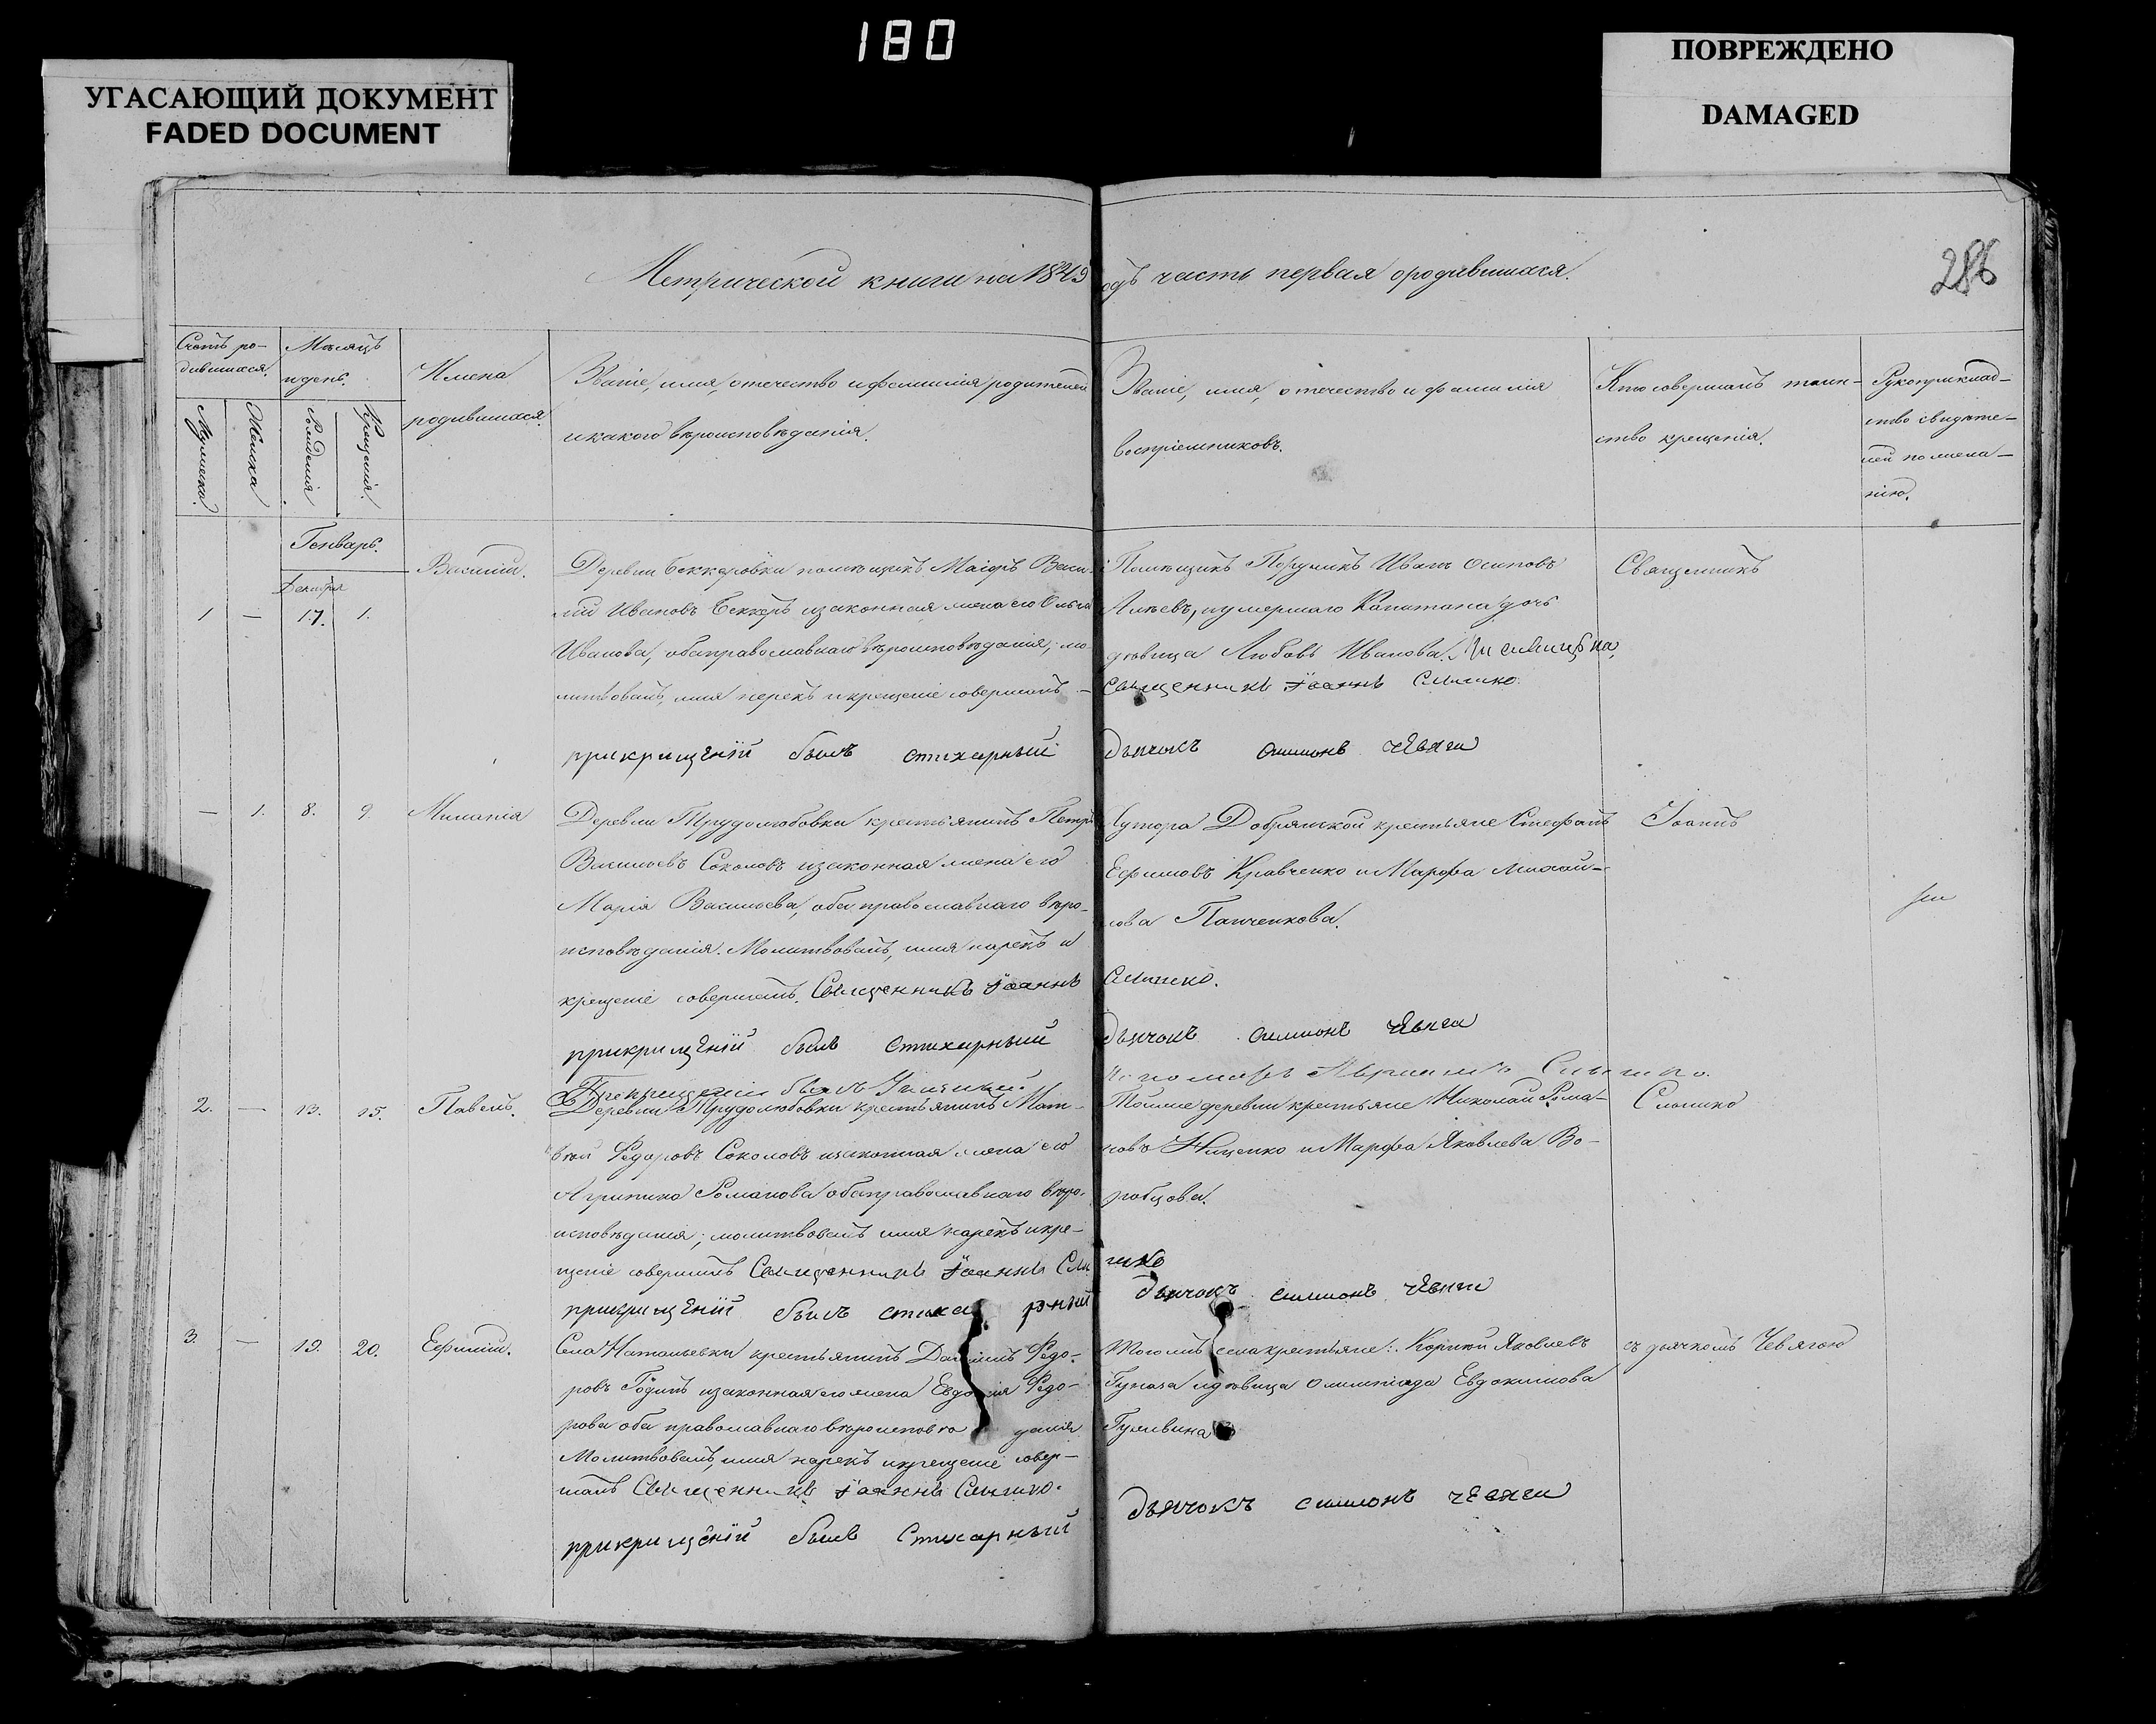 180
УГАСАЮЩИЙ ДОКУМЕНТ
FADED DOCUMENT
ПОВРЕЖДЕНО
DAMAGED
286
Метрической книги на 1849 одъ часть первая ородившихся.
Счетъ ро-
дившихся.
Мужеска.
Женска
Мѣсяцъ
и день.
Рожденія
Крещенія.
Имена
родившихся.
Званіе, имя, отечество и фамилія родителей
и какого вѣроисповѣданія.
Званіе, имя, отечество и фамилія
воспріемниковъ.
Кто совершалъ таин-
ство крещенія.
Рукоприклад-
ство свидѣте-
лей по жела-
нію.
Генварь.
Декабря
1 — 17. 1.
Василій.
Деревни Беккеровки помѣщикъ Маіоръ Васи-
лій Ивановъ Беккеръ изаконная жена его Ольга
Иванова, оба православнаго вѣроисповѣданія; мо-
литвовалъ, имя нарекъ икрещеніе совершалъ —
прикрищеніи былъ стихарный
Помѣщикъ Поручикъ Иванъ Осиповъ
Алѣевъ, иумершаго Капитана дочь
дѣвица Любовь Иванова
Священникъ Іоаннъ Слипко.
Дьячокъ симионъ чевяга
Священникъ
— 1. 8. 9.
Миланія
Деревни Трудолюбовки крестьянинъ Петръ
Васильевъ Соколовъ изаконная жена его
Марія Васильева, оба православнаго вѣро-
исповѣданія. Молитвовалъ, имя нарекъ и
крещеніе совершалъ. Священникъ Іоаннъ
прикрищеніи былъ стихарный
При крещеніи былъ
Хутора Добрянской крестьяне Стефанъ
Ефимовъ Кравченко и Марфа Михай-
лова Панченкова.
Слипко.
дьячокъ симионъ чевяга
Іоаннъ
2. — 13. 15.
Павелъ.
Деревни Трудолюбовки крестьянинъ Мат-
вѣй Федоровъ Соколовъ изаконная жена его
Агрипина Романова оба православнаго вѣро-
исповѣданія; молитвовалъ имя нарекъ икре-
щеніе совершилъ Священникъ Іоаннъ Сли
прикрищеніи былъ стиха рный
Тойже деревни крестьяне Николай Рома-
новъ Нищенко и Марфа Яковлева Во-
робцова.
пко
дьячокъ симионъ чевяга
Слипко
3. — 19. 20.
Ефимій.
Села Натальевки крестьянинъ Даніилъ Федо-
ровъ Годинъ изаконная его жена Евдокія Федо-
рова оба православнаго вѣроисповѣ данія
Молитвовалъ, имя нарекъ икрещеніе совер-
шалъ Священникъ Іоаннъ Слипко.
прикрищеніи былъ Стихарный
Тогожъ села крестьяне: Корнѣй Яковлевъ
идѣвица Олимпіада Евдокимова
дьячокъ симионъ чевяга
съ дьячкомъ Чевягою